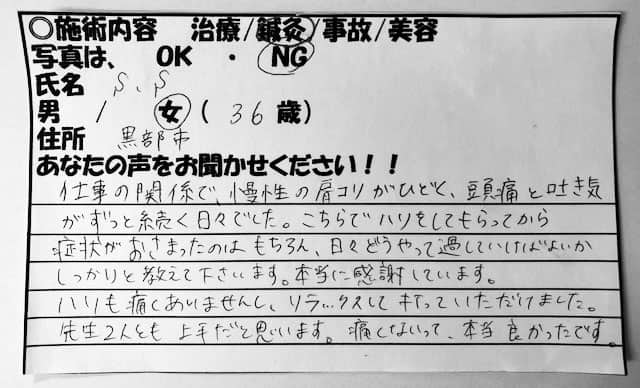 ○施術内容 治療/鍼灸/事故/美容
写真は、 OK ・ NG
氏名 S.S
男 / 女 ( 36 歳)
住所 黒部市
あなたの声をお聞かせください！！
仕事の関係で、慢性の肩コリがひどく、頭痛と吐き気
がずっと続く日々でした。こちらでハリをしてもらってから
症状がおさまったのはもちろん、日々どうやって過していけばよいか
しっかりと教えて下さいます。本当に感謝しています。
ハリも痛くありませんし、リラックスして打っていただけました。
先生2人とも上手だと思います。痛くないって、本当良かったです。